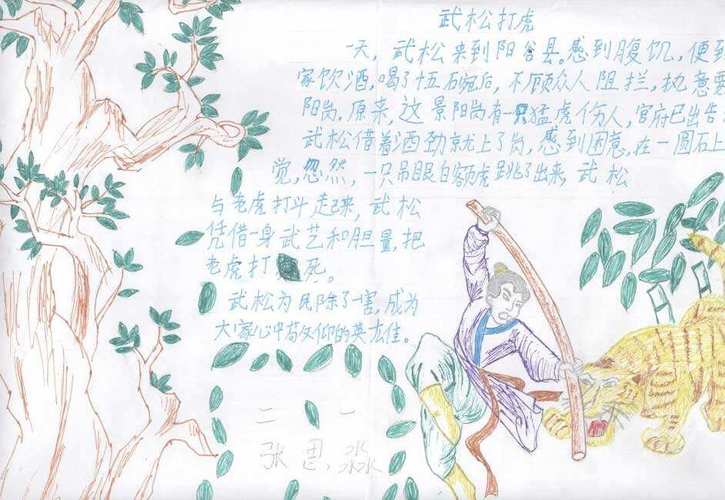 武松打虎
一天，武松来到阳谷县。感到腹饥，便到
家饮酒，喝了十五碗后，不顾众人阻拦，执意
阳岗，原来，这景阳岗有一只猛虎伤人，官府已出告
武松借着酒劲就上了岗，感到困意，在一圆石上
觉，忽然，一只吊眼白额虎跳了出来，武松
与老虎打斗起来，武松
凭借一身武艺和胆量，把
老虎打死。
武松为民除了一害，成为
大家心中敬仰的英雄。
二一
张思淼